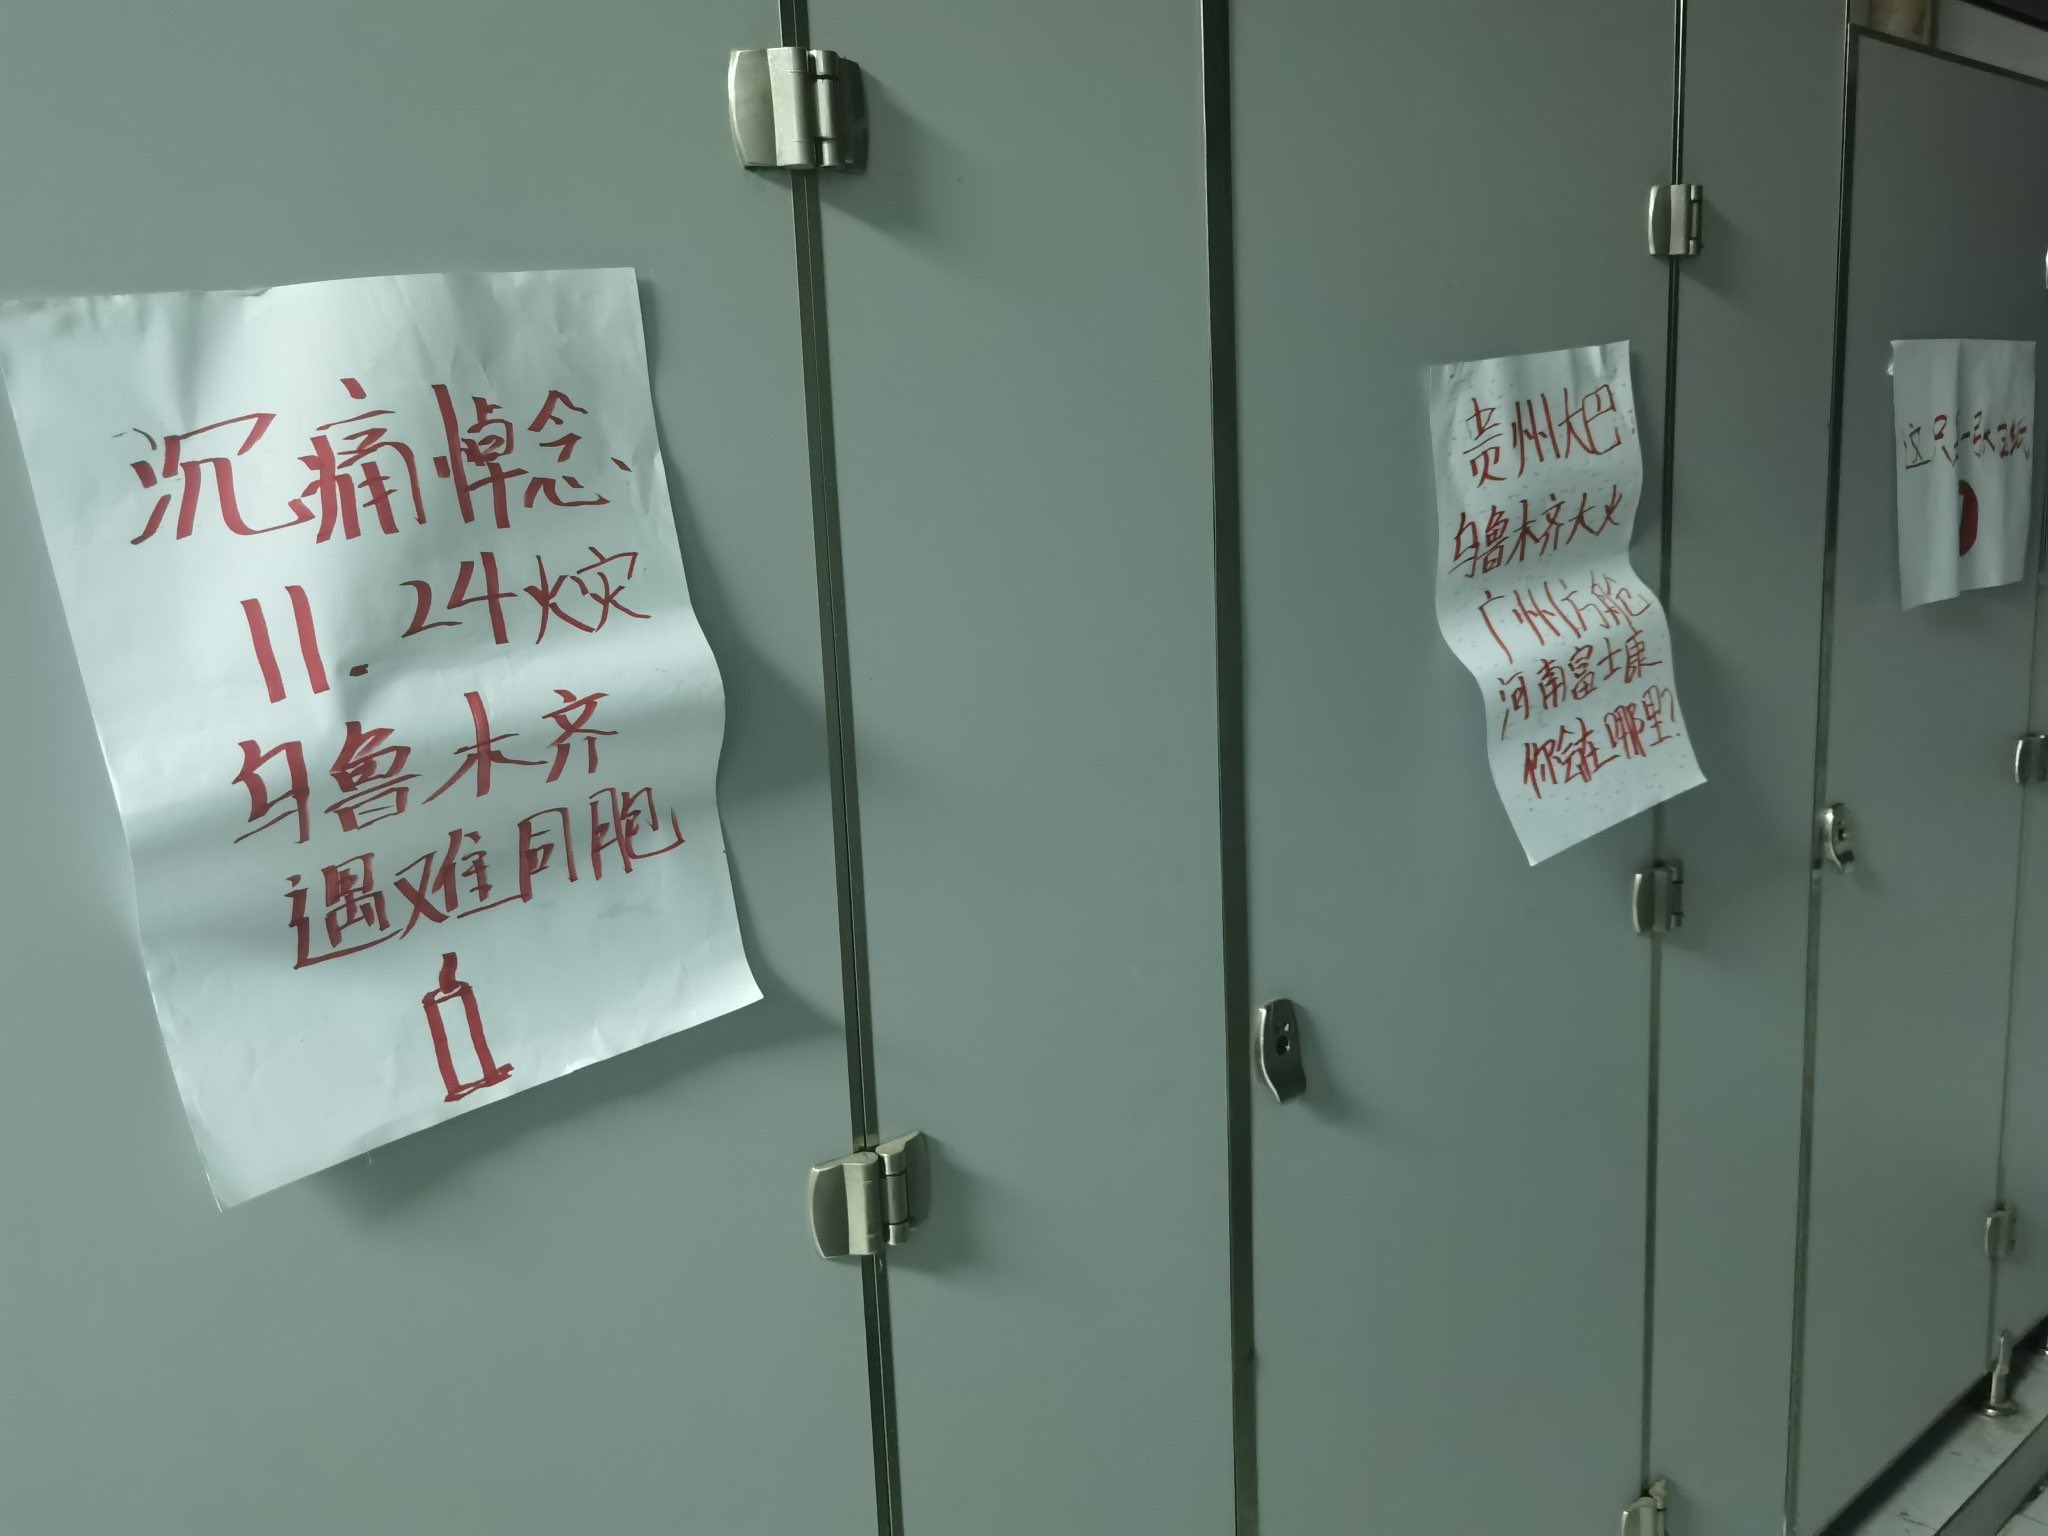 沉痛悼念
11.24火灾
乌鲁木齐
遇难同胞
贵州大巴
乌鲁木齐大火
广州方舱
河南富士康
你会在哪里?
这只是一张